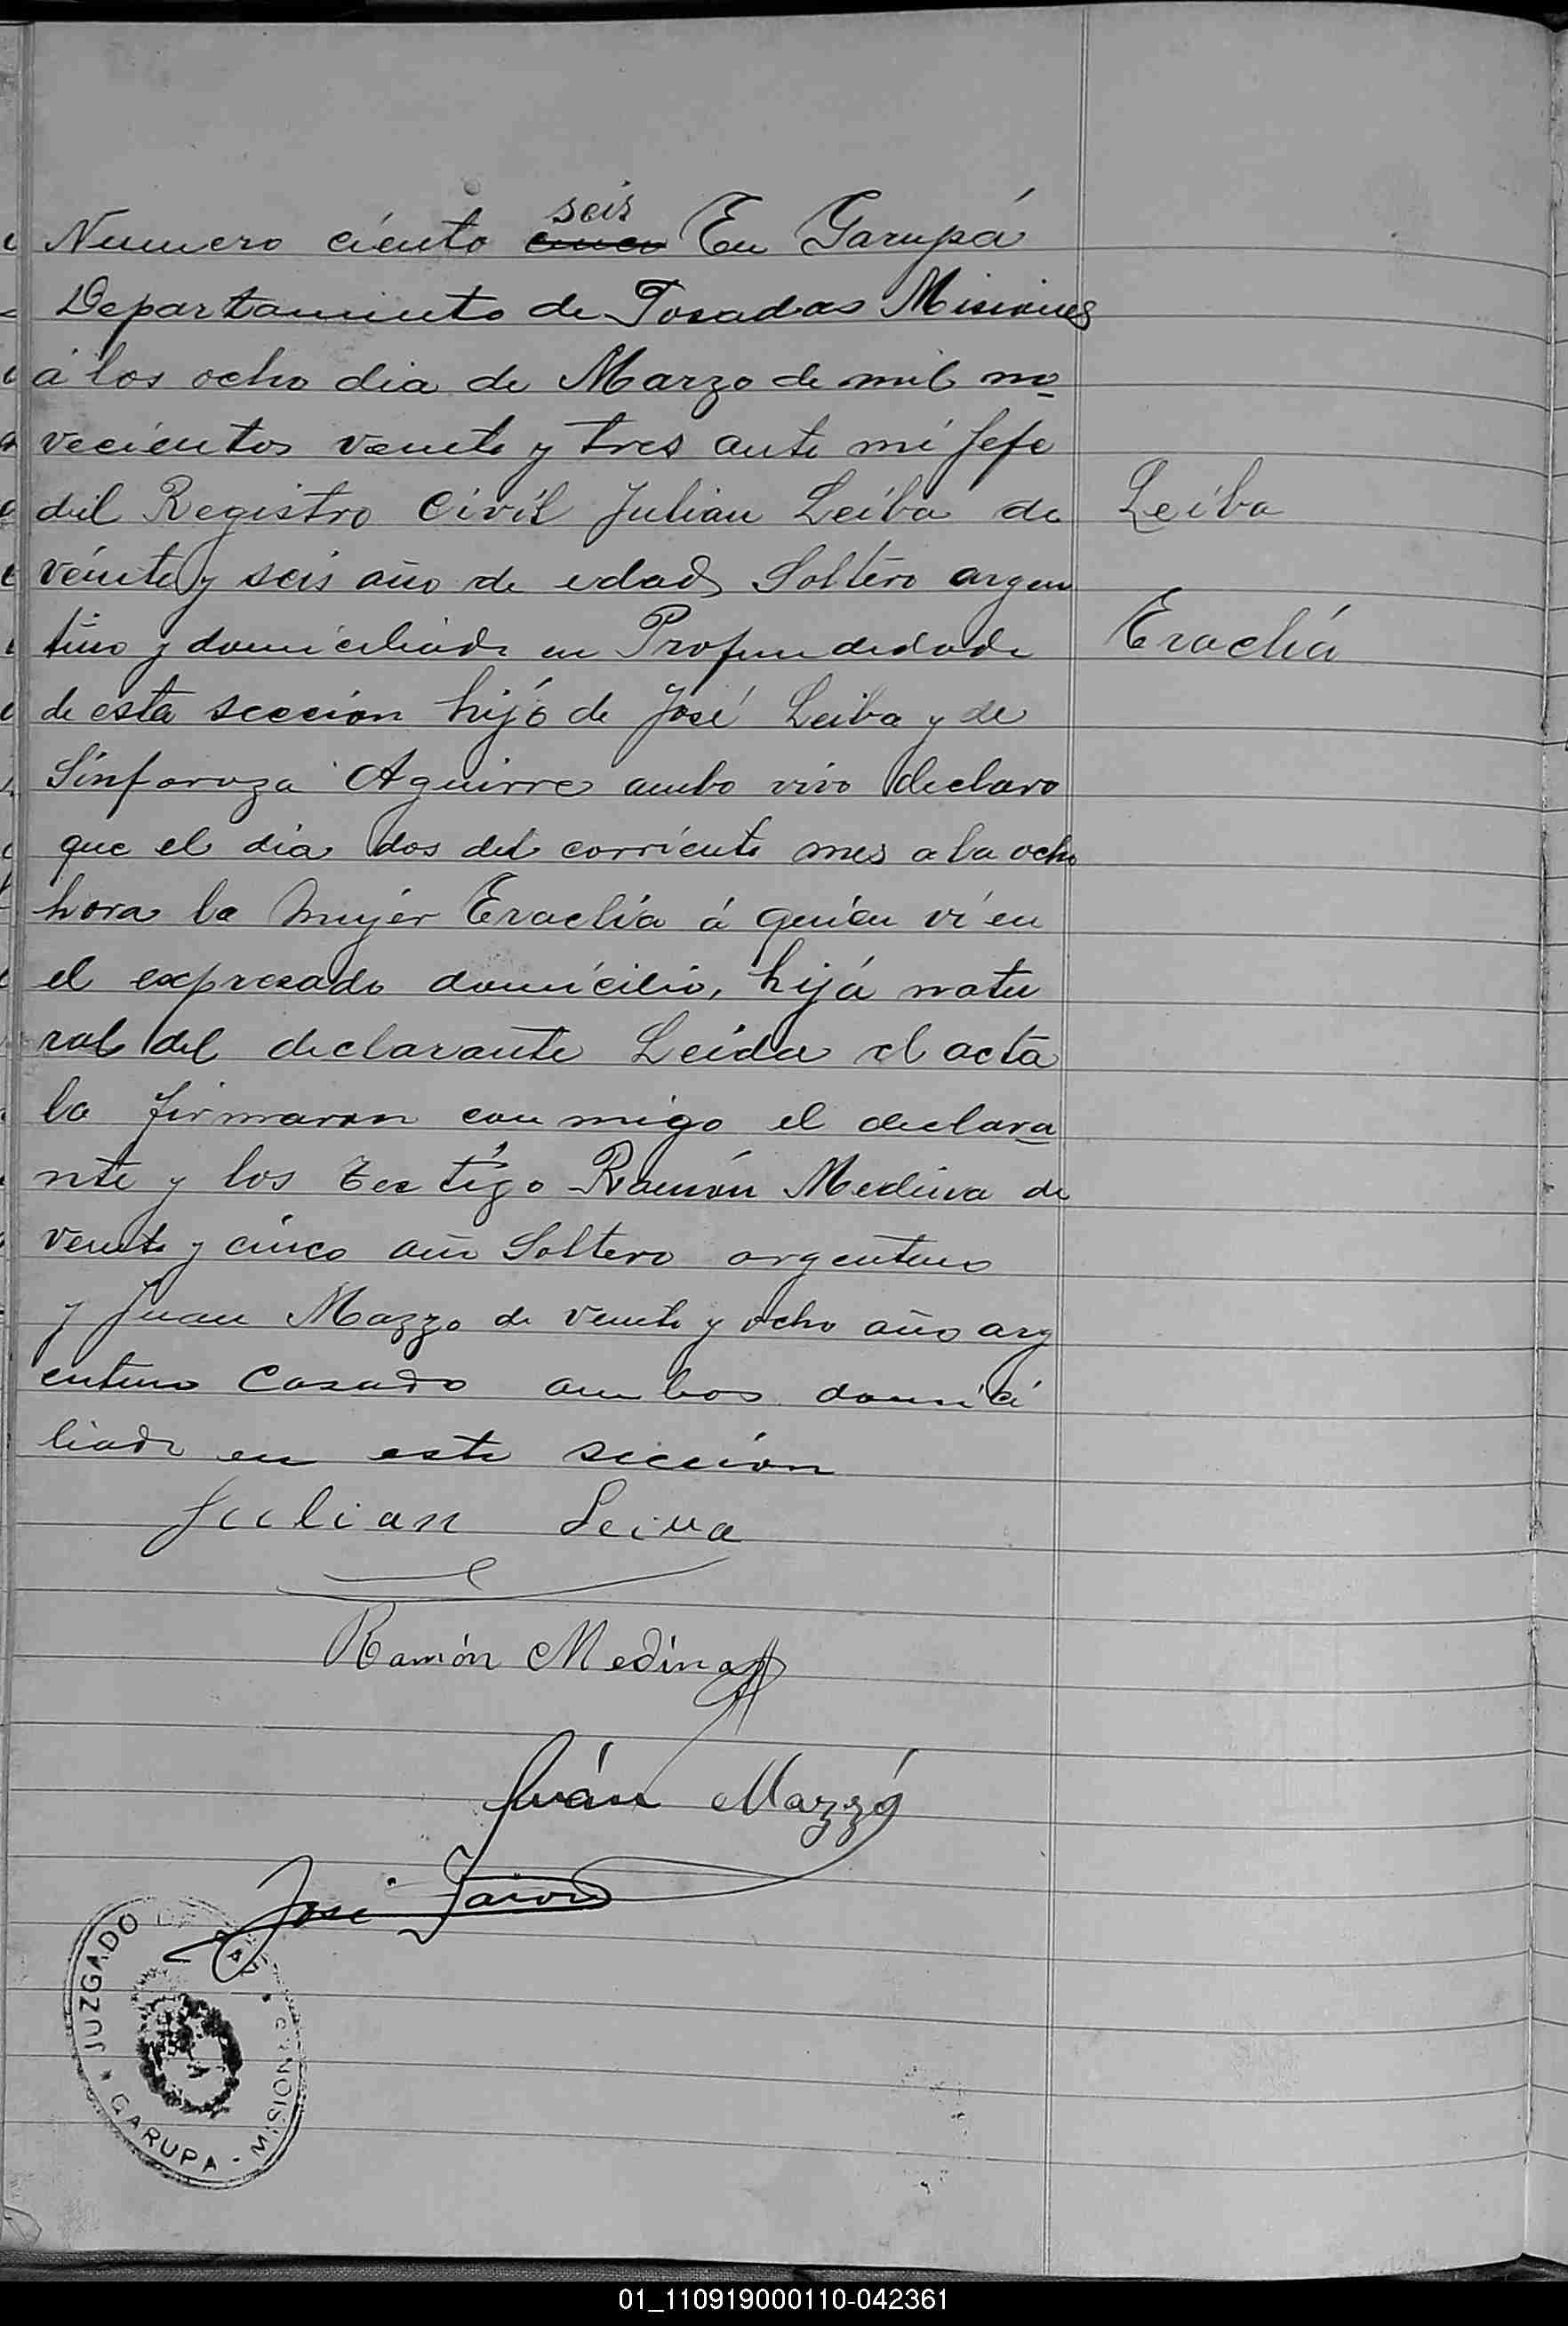 seis
Numero ciento cinco En Garupá
Departamiento de Posadas Misiones
á los ocho dia de Marzo de mil no
vecientos vente y tres ante mi Jefe
del Registro Civil Julian Leiba de
veinte y seis año de edad Soltero argen
tino y domiciliado en Profundidade
de esta seccion hijo de José Leiba y de
Sinforoza Aguirre ambo vivo declaro
que el dia dos del corriente mes a la ocho
hora la mujer Eraclia á quien vi en
el expresado domicilio, hija natu
ral del declarante Leida el acta
la firmaron con migo el declara
nte y los testigo Ramón Medina de
vente y cinco año Soltero argentino
y Juan Mazzo de vente y ocho año arg
entino Casado ambos domici
liado en este seccion
Leiba
Eraclia
Julian Leiva
Ramón Medina
Juán Mazzó
José
JUZGADO DE PAZ
GARUPA - MISIONES
01_110919000110-042361